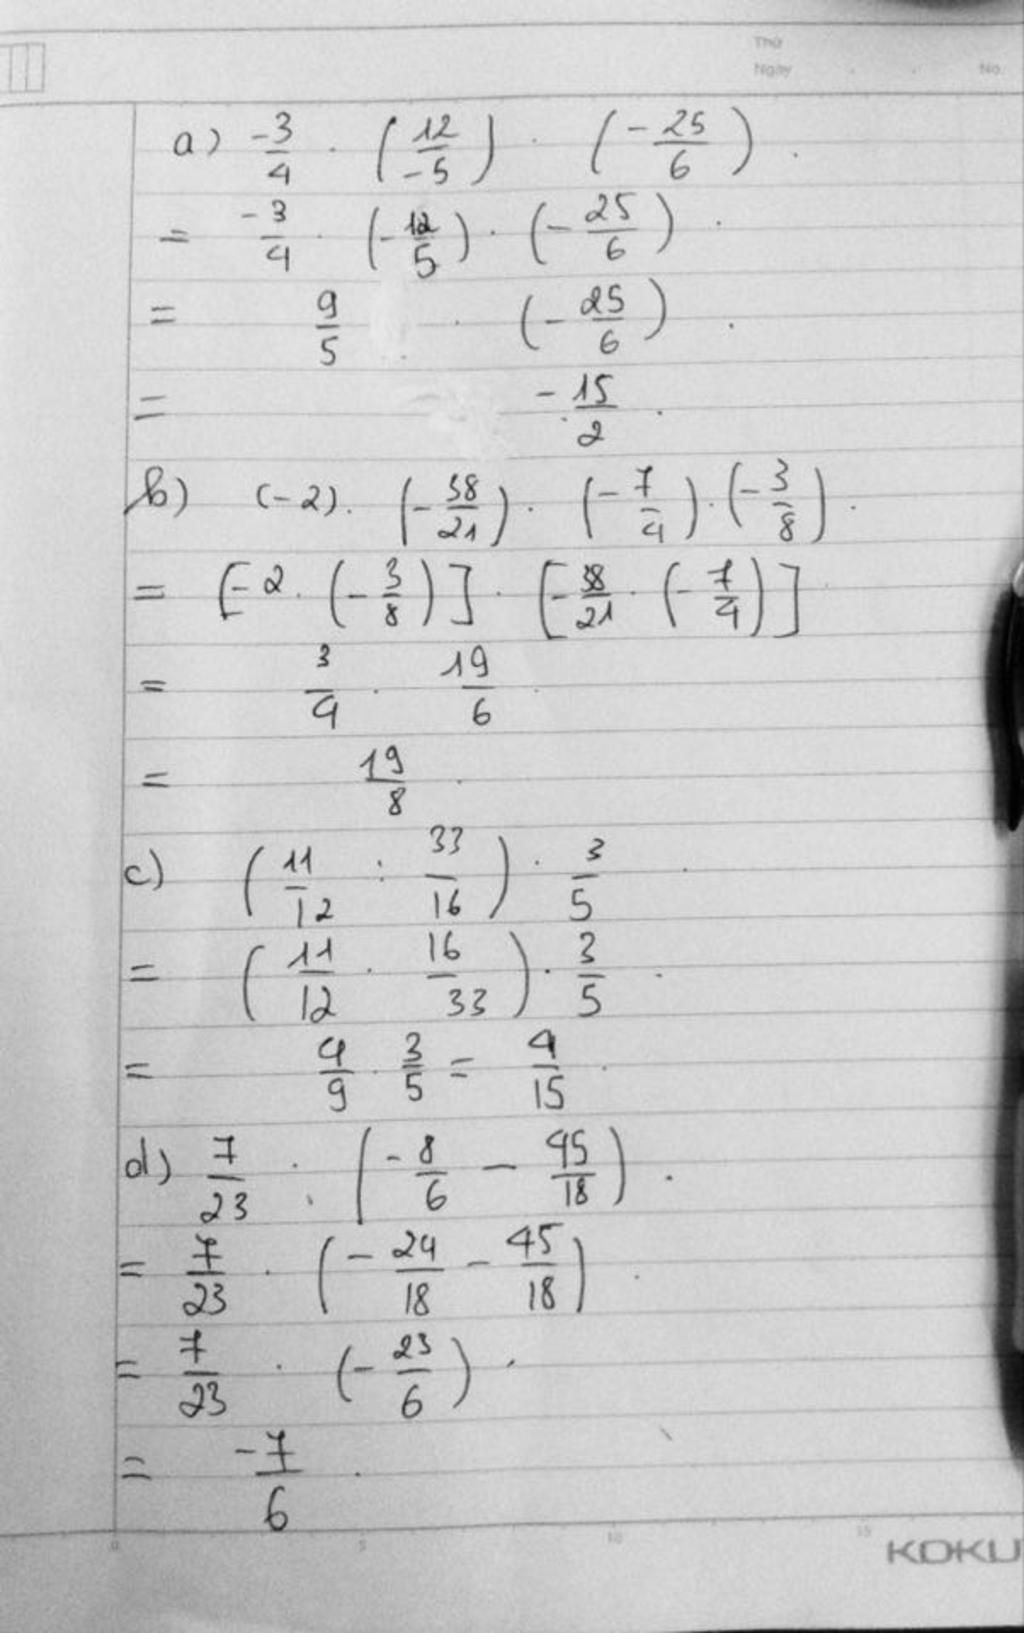 Thứ
Ngày No.
a) -3/4 . (12/-5) . (-25/6).
= -3/4 . (-12/5) . (-25/6).
= 9/5 . (-25/6).
= -15/2.
b) (-2). (-38/21). (-7/4).(-3/8).
= [-2. (-3/8)] . [-38/21 . (-7/4)]
= 3/4 . 19/6.
= 19/8.
c) (11/12 : 33/16) . 3/5.
= (11/12 . 16/33) . 3/5.
= 4/9 . 3/5 = 4/15.
d) 7/23 . (-8/6 - 45/18).
= 7/23 . (-24/18 - 45/18).
= 7/23 . (-23/6).
= -7/6.
0 5 10 15
KOKU